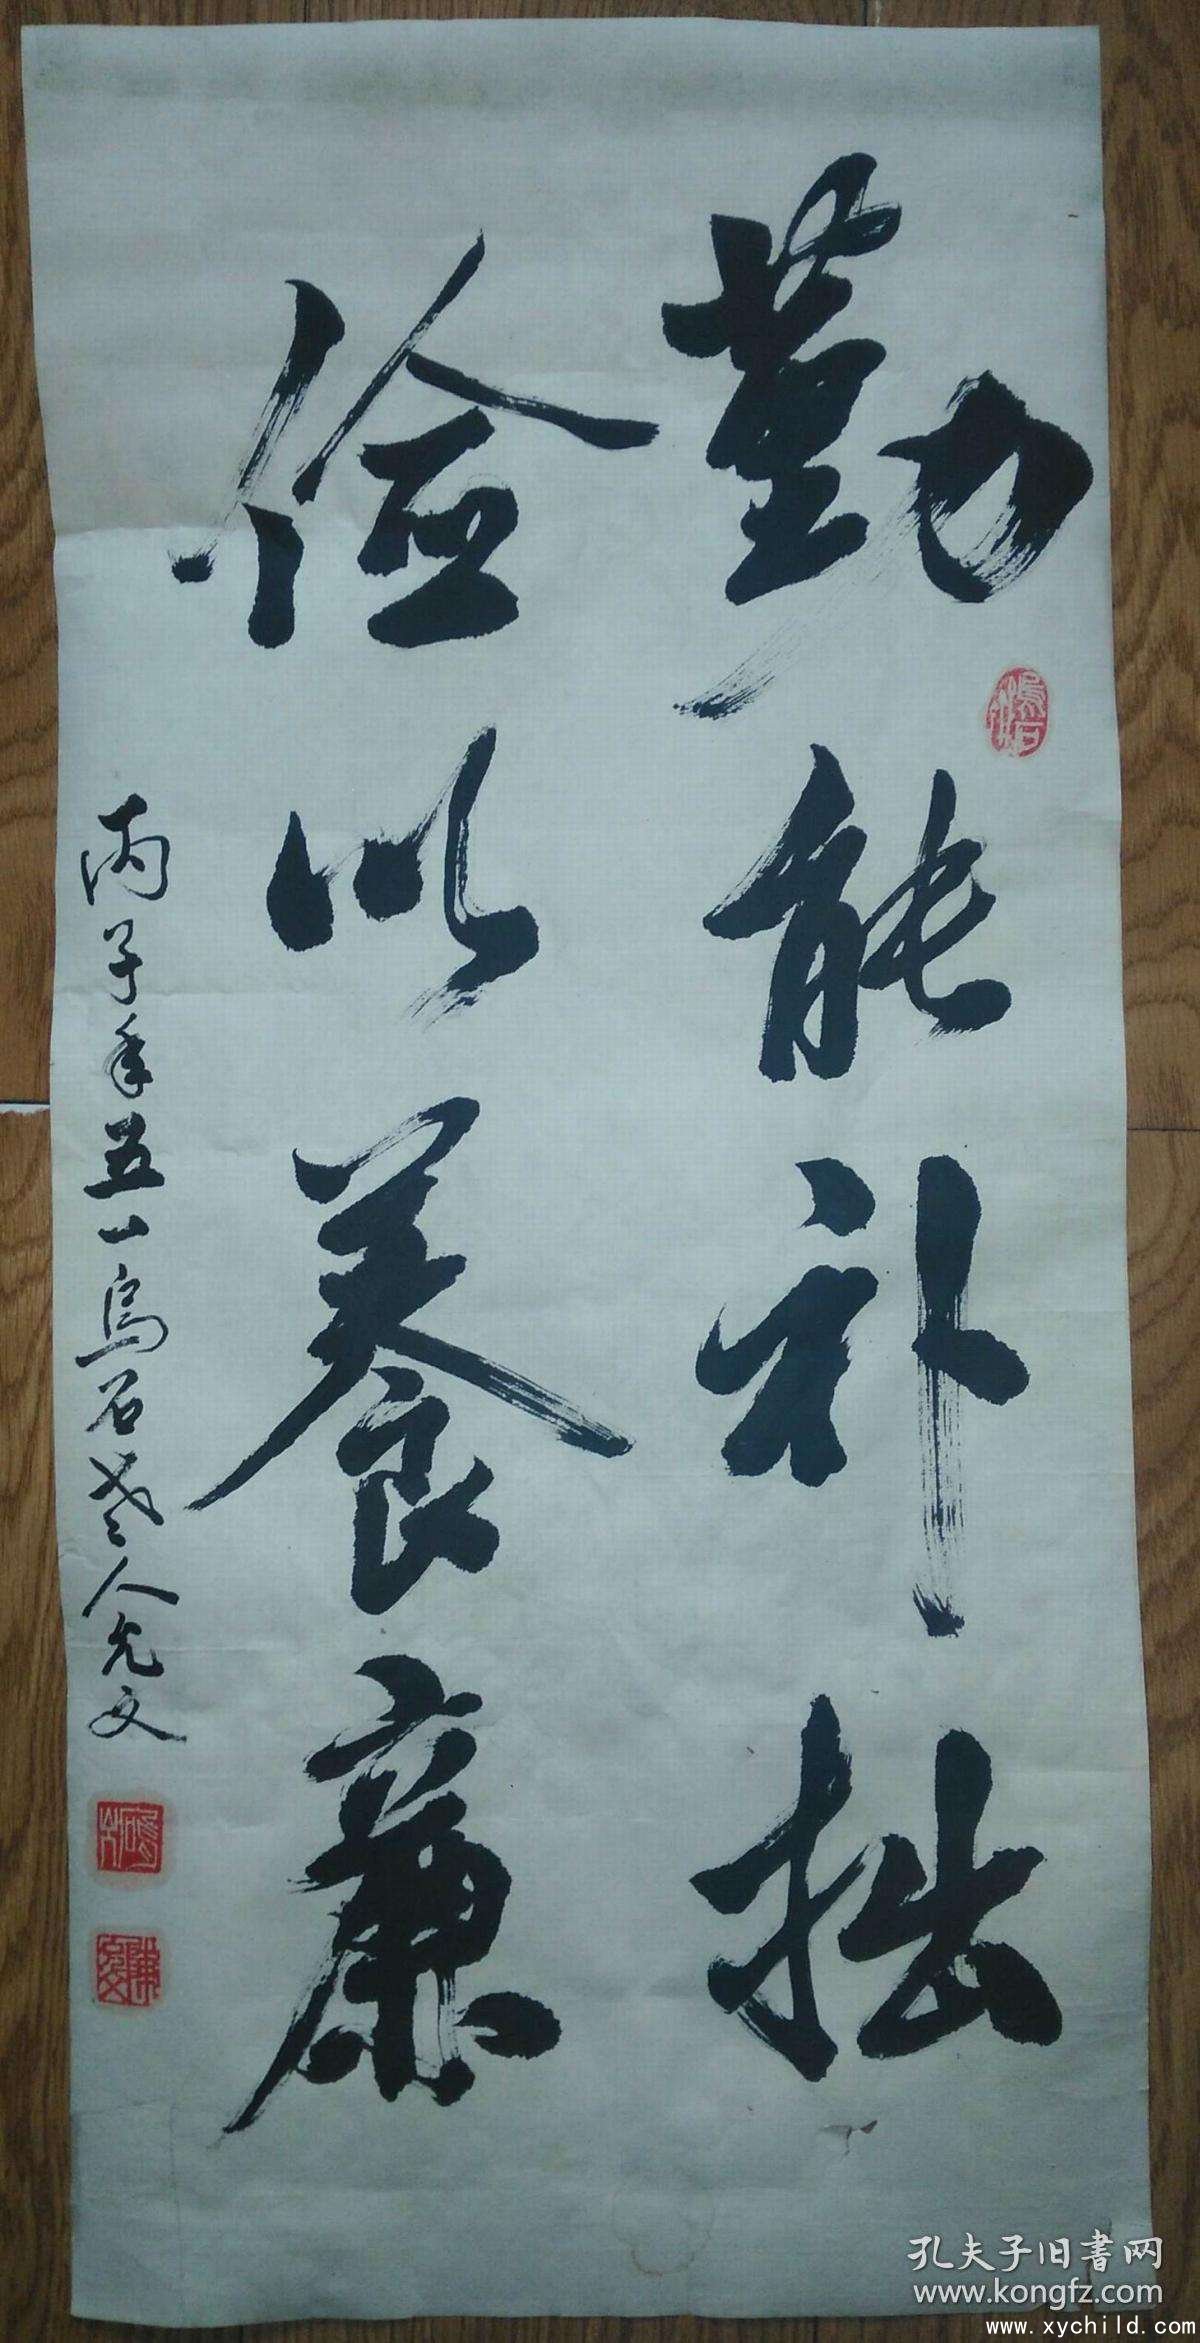 勤能补拙
俭以养廉
丙子年五一烏石老人允文
孔夫子旧書网
www.kongfz.com
www.xychild.com